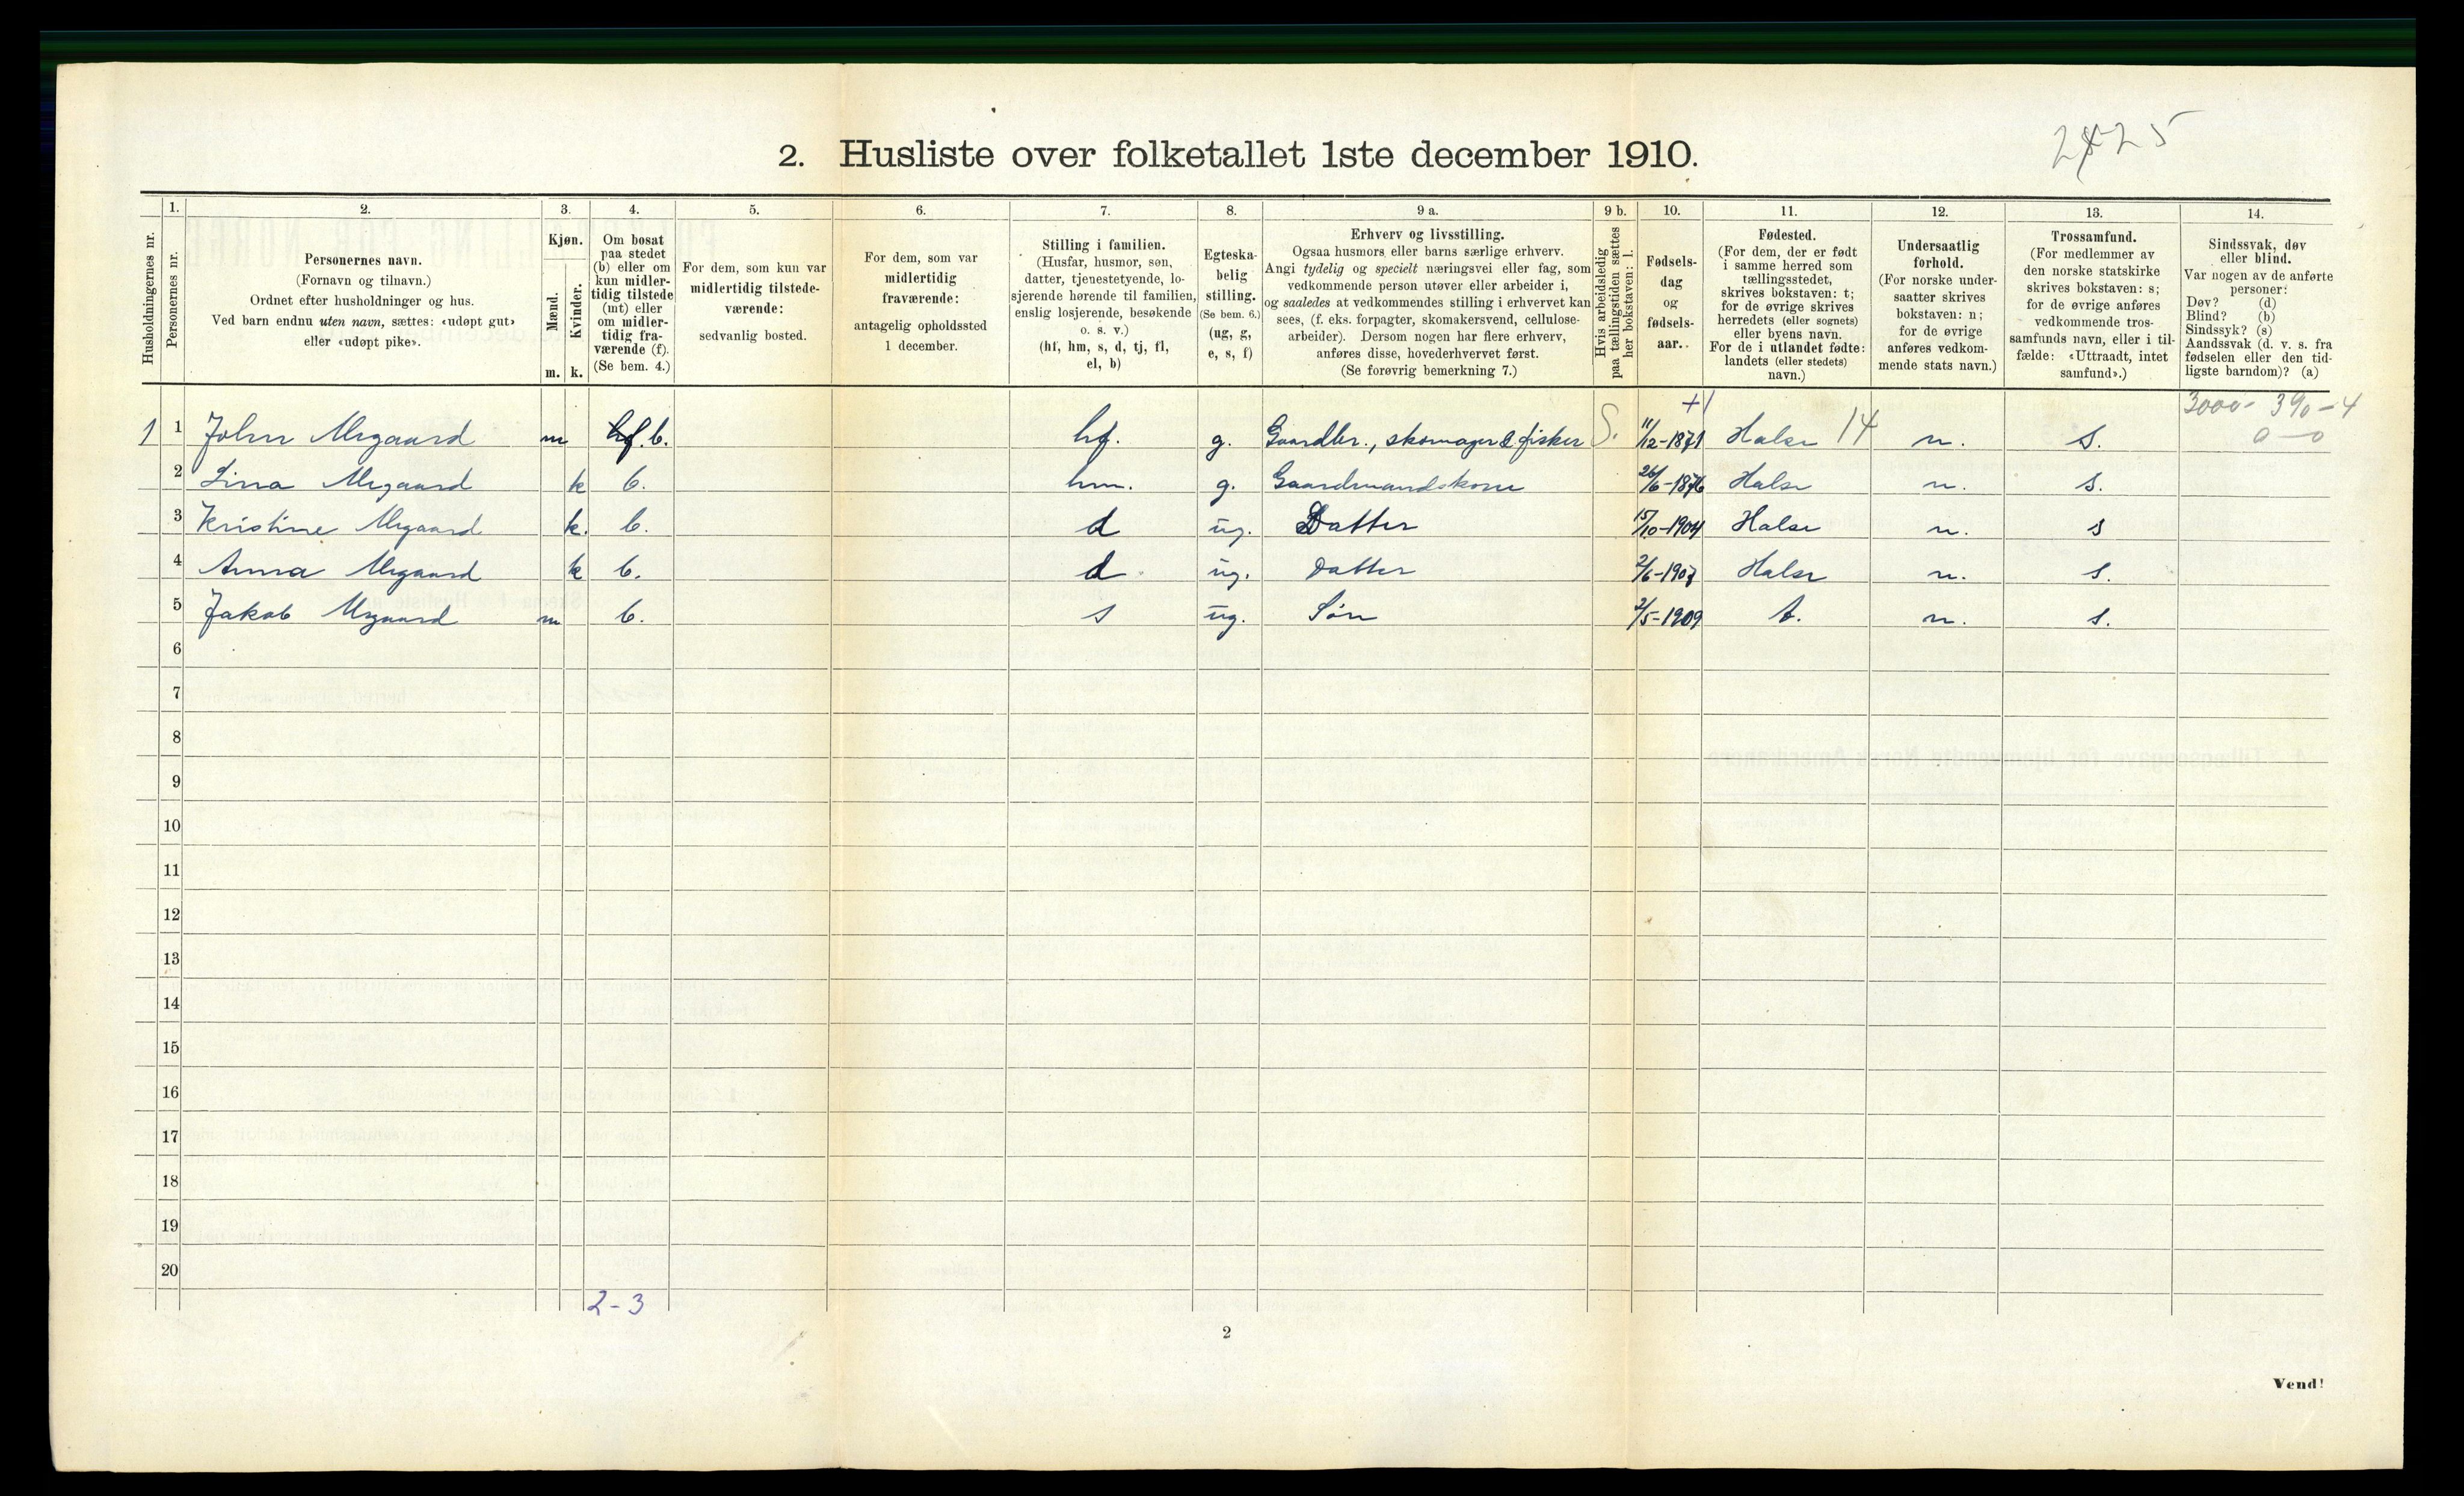 2. Husliste over folketallet 1ste december 1910.
25
Husholdningernes nr.
1. Personernes nr.
2. Personernes navn. (Fornavn og tilnavn.) Ordnet efter husholdninger og hus. Ved barn endnu uten navn, sættes: «udøpt gut» eller «udøpt pike».
3. Kjøn. Mænd. m. Kvinder. k.
4. Om bosat paa stedet (b) eller om kun midlertidig tilstede (mt) eller om midlertidig fraværende (f). (Se bem. 4.)
5. For dem, som kun var midlertidig tilstedeværende: sedvanlig bosted.
6. For dem, som var midlertidig fraværende: antagelig opholdssted 1 december.
7. Stilling i familien. (Husfar, husmor, søn, datter, tjenestetyende, losjerende hørende til familien, enslig losjerende, besøkende o. s. v.) (hf, hm, s, d, tj, fl, el, b)
8. Egteskabelig stilling. (Se bem. 6.) (ug, g, e, s, f)
9 a. Erhverv og livsstilling. Ogsaa husmors eller barns særlige erhverv. Angi tydelig og specielt næringsvei eller fag, som vedkommende person utøver eller arbeider i, og saaledes at vedkommendes stilling i erhvervet kan sees, (f. eks. forpagter, skomakersvend, cellulosearbeider). Dersom nogen har flere erhverv, anføres disse, hovederhvervet først. (Se forøvrig bemerkning 7.)
9 b. Hvis arbeidsledig paa tællingstiden sættes her bokstaven: l.
10. Fødselsdag og fødselsaar.
11. Fødested. (For dem, der er født i samme herred som tællingsstedet, skrives bokstaven: t; for de øvrige skrives herredets (eller sognets) eller byens navn. For de i utlandet fødte: landets (eller stedets) navn.)
12. Undersaatlig forhold. (For norske undersaatter skrives bokstaven: n; for de øvrige anføres vedkommende stats navn.)
13. Trossamfund. (For medlemmer av den norske statskirke skrives bokstaven: s; for de øvrige anføres vedkommende trossamfunds navn, eller i tilfælde: «Uttraadt, intet samfund».)
14. Sindssvak, døv eller blind. Var nogen av de anførte personer: Døv? (d) Blind? (b) Sindssyk? (s) Aandssvak (d. v. s. fra fødselen eller den tidligste barndom)? (a)
3000 - 390 - 4
0 - 0
1 1 John Megaard m b. hf. g. Gaardbr., skomager & fisker S. 11/12-1871 Halse 14 n. S.
2 Lina Megaard k b. hm. g. Gaardmandskone 26/6-1876 Halse n. s.
3 Kristine Megaard k. b. d ug. Datter 15/10-1904 Halse n. s
4 Anna Megaard k b. d ug. Datter 2/6-1907 Halse n. s.
5 Jakob Megaard m b. s ug. Søn 2/5-1909 t. n. s.
6
7
8
9
10
11
12
13
14
15
16
17
18
19
20
2-3
2
Vend!